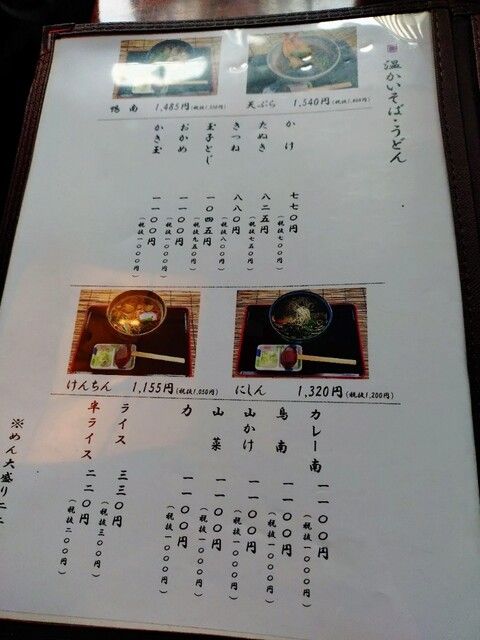 温かいそば・うどん
天ぷら 1,540円(税抜1,400円)
鴨南 1,485円(税抜1,350円)
かけ 七七〇円(税抜七〇〇円)
たぬき 八二五円(税抜七五〇円)
きつね 八八〇円(税抜八〇〇円)
玉子とじ 一〇四五円(税抜九五〇円)
おかめ 一一〇〇円(税抜一〇〇〇円)
かき玉 一一〇〇円(税抜一〇〇〇円)
にしん 1,320円(税抜1,200円)
けんちん 1,155円(税抜1,050円)
カレー南 一一〇〇円(税抜一〇〇〇円)
鳥南 一一〇〇円(税抜一〇〇〇円)
山かけ 一一〇〇円(税抜一〇〇〇円)
山菜 一一〇〇円(税抜一〇〇〇円)
力 一一〇〇円(税抜一〇〇〇円)
ライス 三三〇円(税抜三〇〇円)
半ライス 二二〇円(税抜二〇〇円)
※めん大盛り二二